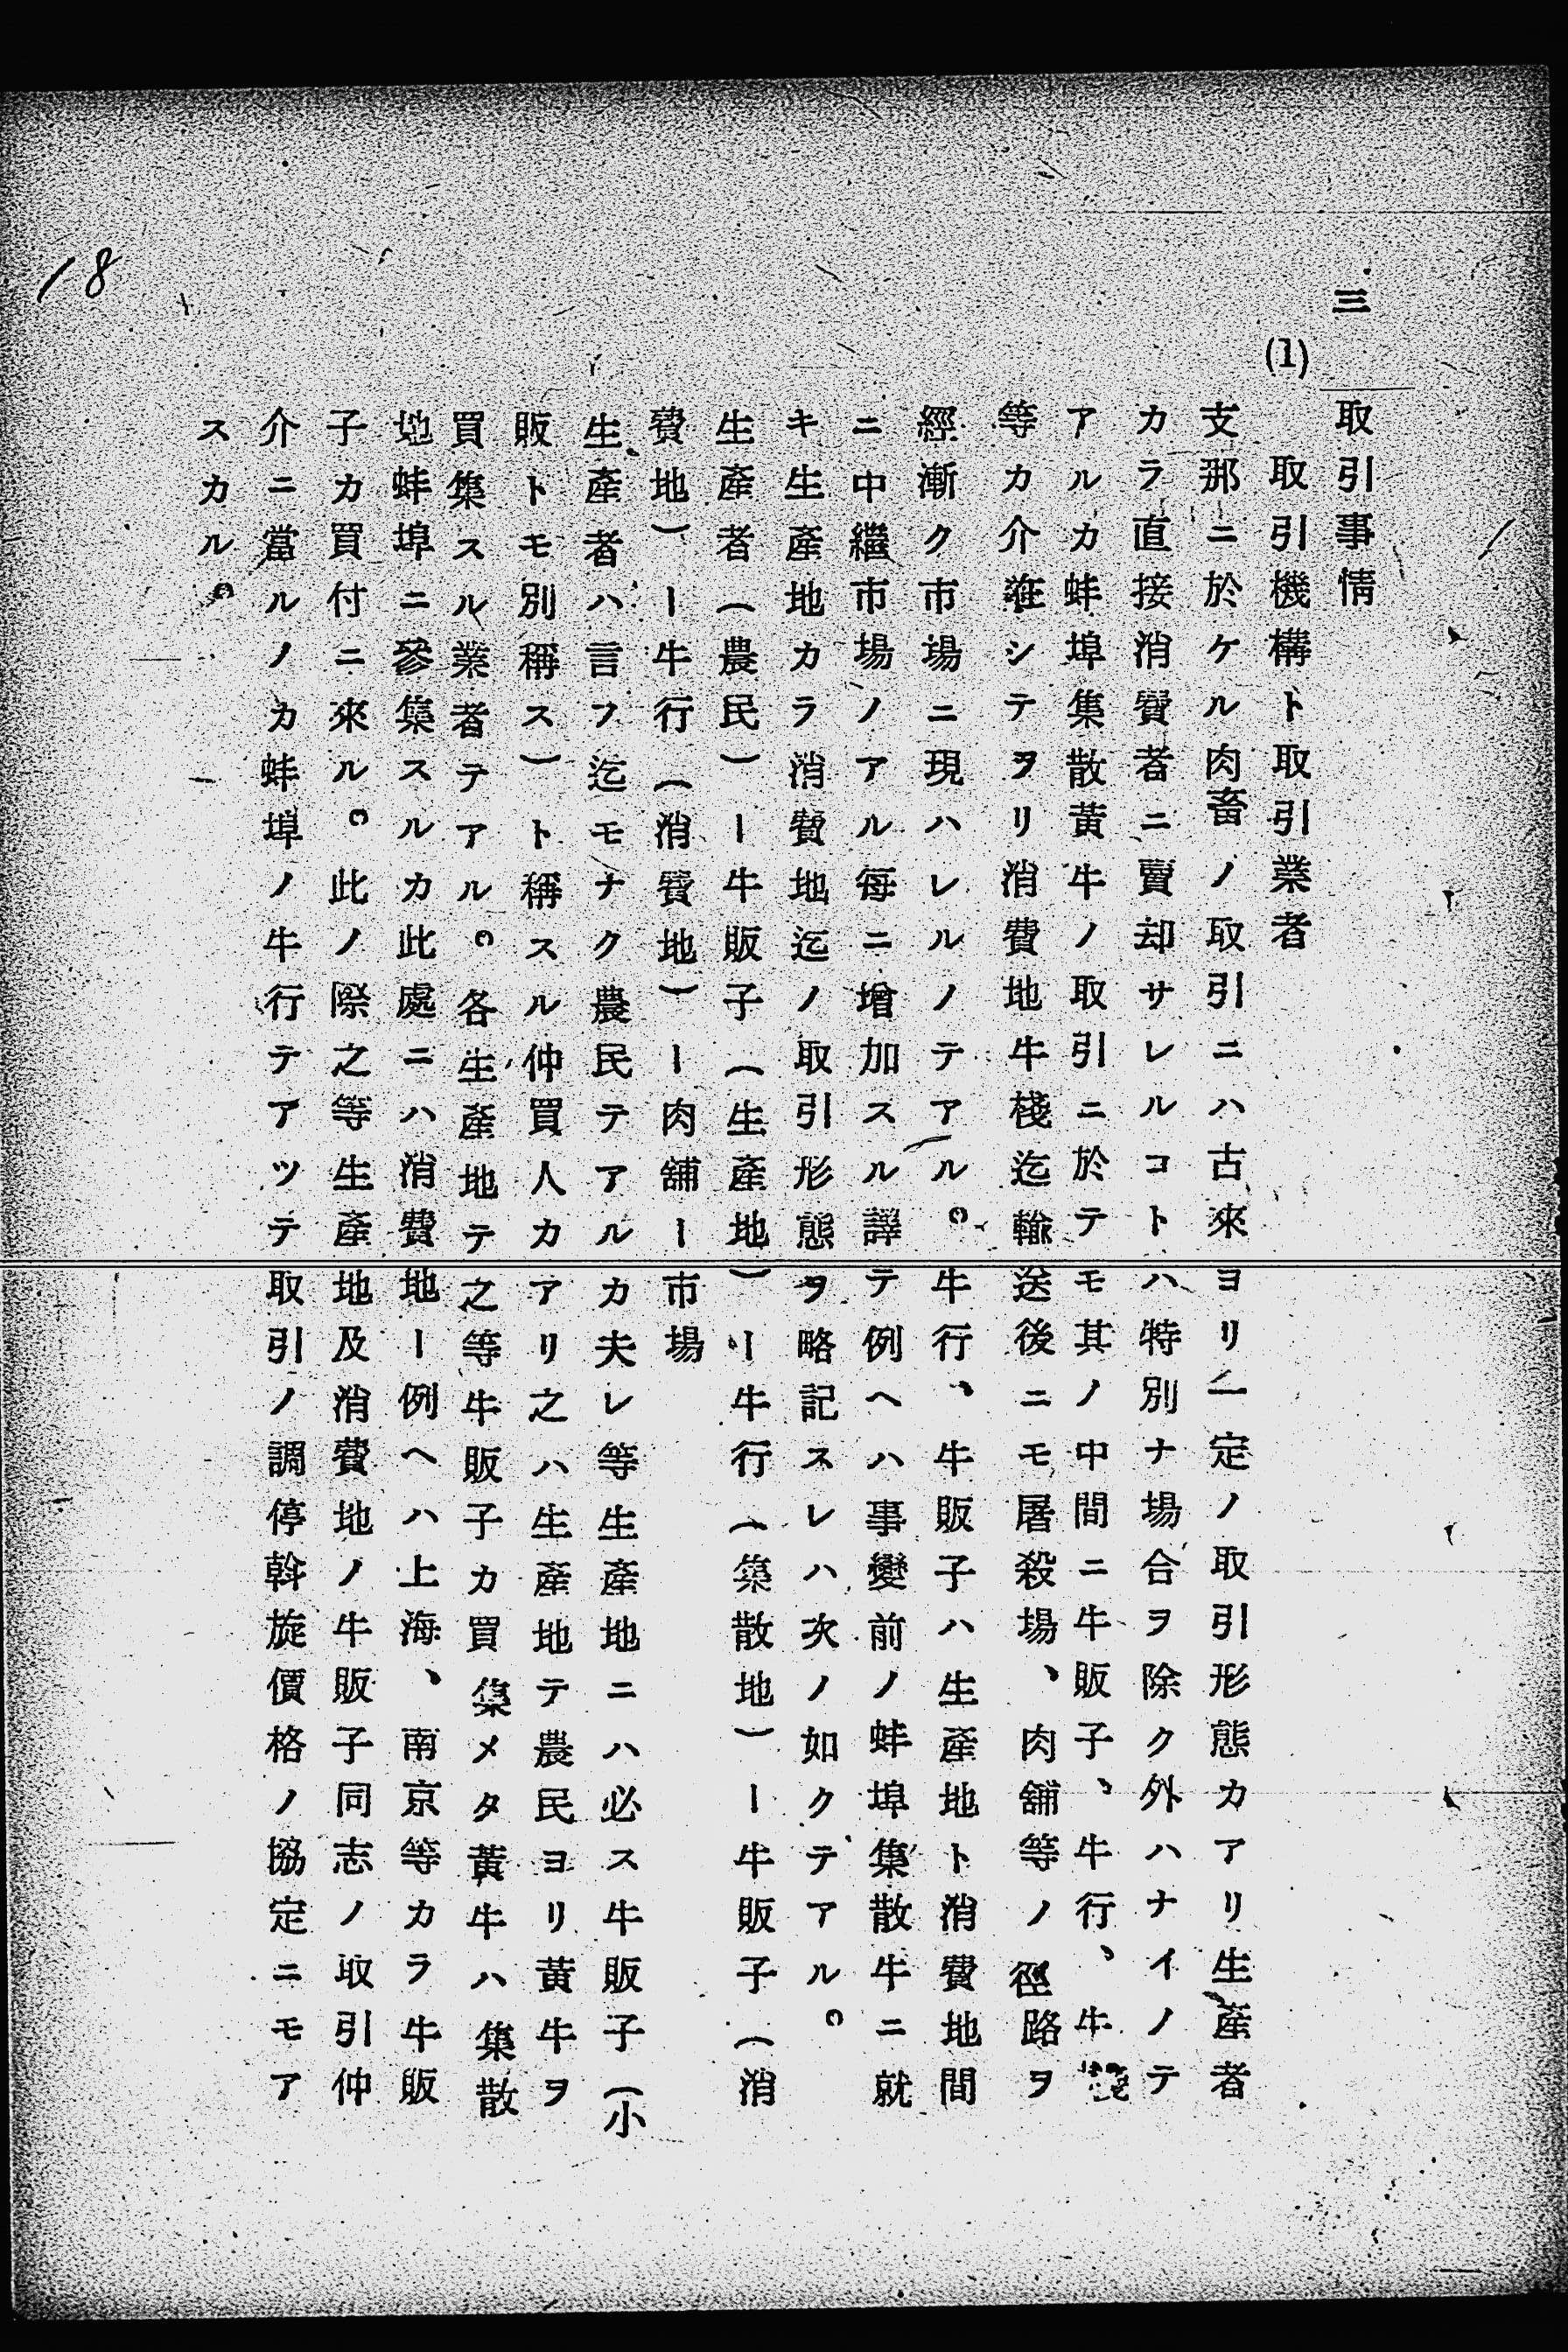 三 取引事情
(1) 取引機構ト取引業者
支那ニ於ケル肉畜ノ取引ニハ古來ヨリ一定ノ取引形態カアリ生產者
カラ直接消費者ニ賣却サレルコトハ特別ナ場合ヲ除ク外ハナイノテ
アルカ蚌埠集散黃牛ノ取引ニ於テモ其ノ中間ニ牛販子、牛行、牛棧
等カ介在シテヲリ消費地牛棧迄輸送後ニモ屠殺場、肉舖等ノ徑路ヲ
經漸ク市場ニ現ハレルノテアル。牛行、牛販子ハ生產地ト消費地間
ニ中繼市場ノアル每ニ增加スル譯テ例ヘハ事變前ノ蚌埠集散牛ニ就
キ生產地カラ消費地迄ノ取引形態ヲ略記スレハ次ノ如クテアル。
生產者(農民)ー牛販子(生產地)ー牛行(集散地)ー牛販子(消
費地)ー牛行(消費地)ー肉舖ー市場
生產者ハ言フ迄モナク農民テアルカ夫レ等生產地ニハ必ス牛販子(小
販トモ別稱ス)ト稱スル仲買人カアリ之ハ生產地テ農民ヨリ黃牛ヲ
買集スル業者テアル。各生產地テ之等牛販子カ買集メタ黃牛ハ集散
地蚌埠ニ參集スルカ此處ニハ消費地ー例ヘハ上海、南京等カラ牛販
子カ買付ニ來ル。此ノ際之等生產地及消費地ノ牛販子同志ノ取引仲
介ニ當ルノカ蚌埠ノ牛行テアツテ取引ノ調停斡旋價格ノ協定ニモア
スカル。
18